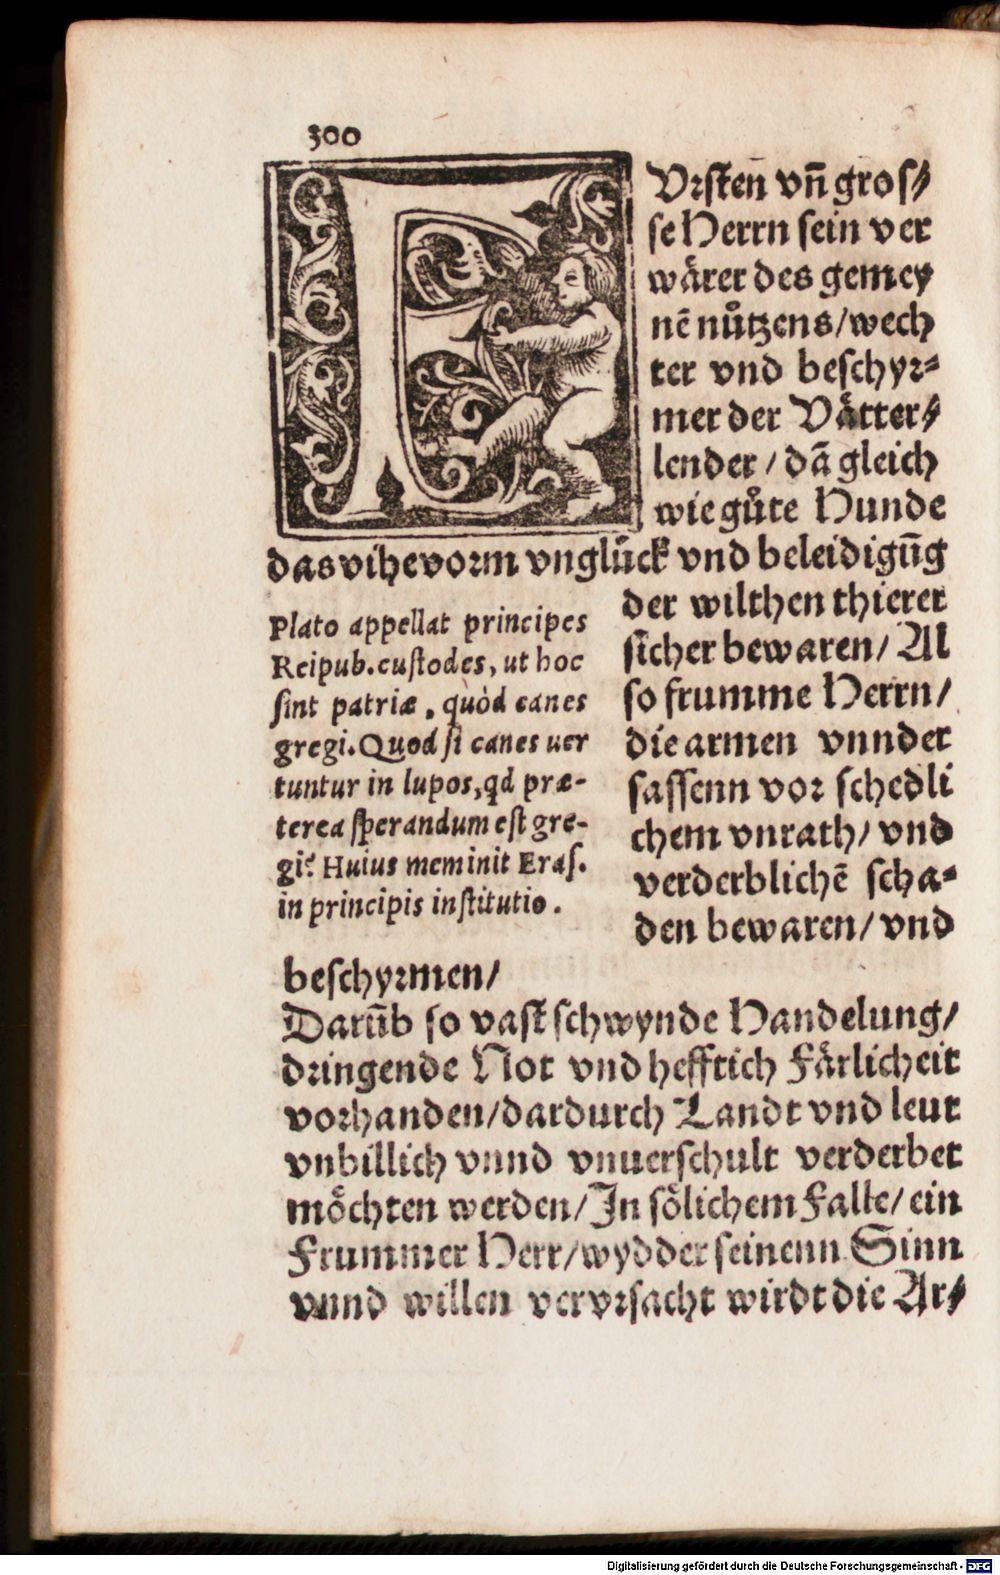 300
FUrsten vñ gros⸗
se Herrn sein ver
wårer des gemey
nē nůtzens/wech
ter vnd beschyr⸗
mer der Våtter⸗
lender / dā gleich
wie gůte Hunde
das vihe vorm vnglůck vnd beleidigūg
der wilthen thierer
sicher bewaren/ Al
so frumme Herrn/
die armen vnnder
sassenn vor schedli
chem vnrath/ vnd
verderblichē scha⸗
den bewaren/ vnd
Plato appellat principes
Reipub. custodes, ut hoc
sint patriæ, quòd canes
gregi. Quod si canes uer
tuntur in lupos, qd præ-
terea sperandum est gre-
gi? Huius meminit Eras.
in principis institutio.
beschyrmen/
Darūb so vast schwynde Handelung/
dringende Not vnd hefftich Fårlicheit
vorhanden/dardurch Landt vnd leut
vnbillich vnnd vnuerschult verderbet
mőchten werden/ In sőlichem Falle/ ein
Frummer Herr/wydder seinenn Sinn
vnnd willen vervrsacht wirdt die Ar⸗
Digitalisierung gefördert durch die Deutsche Forschungsgemeinschaft - DFG